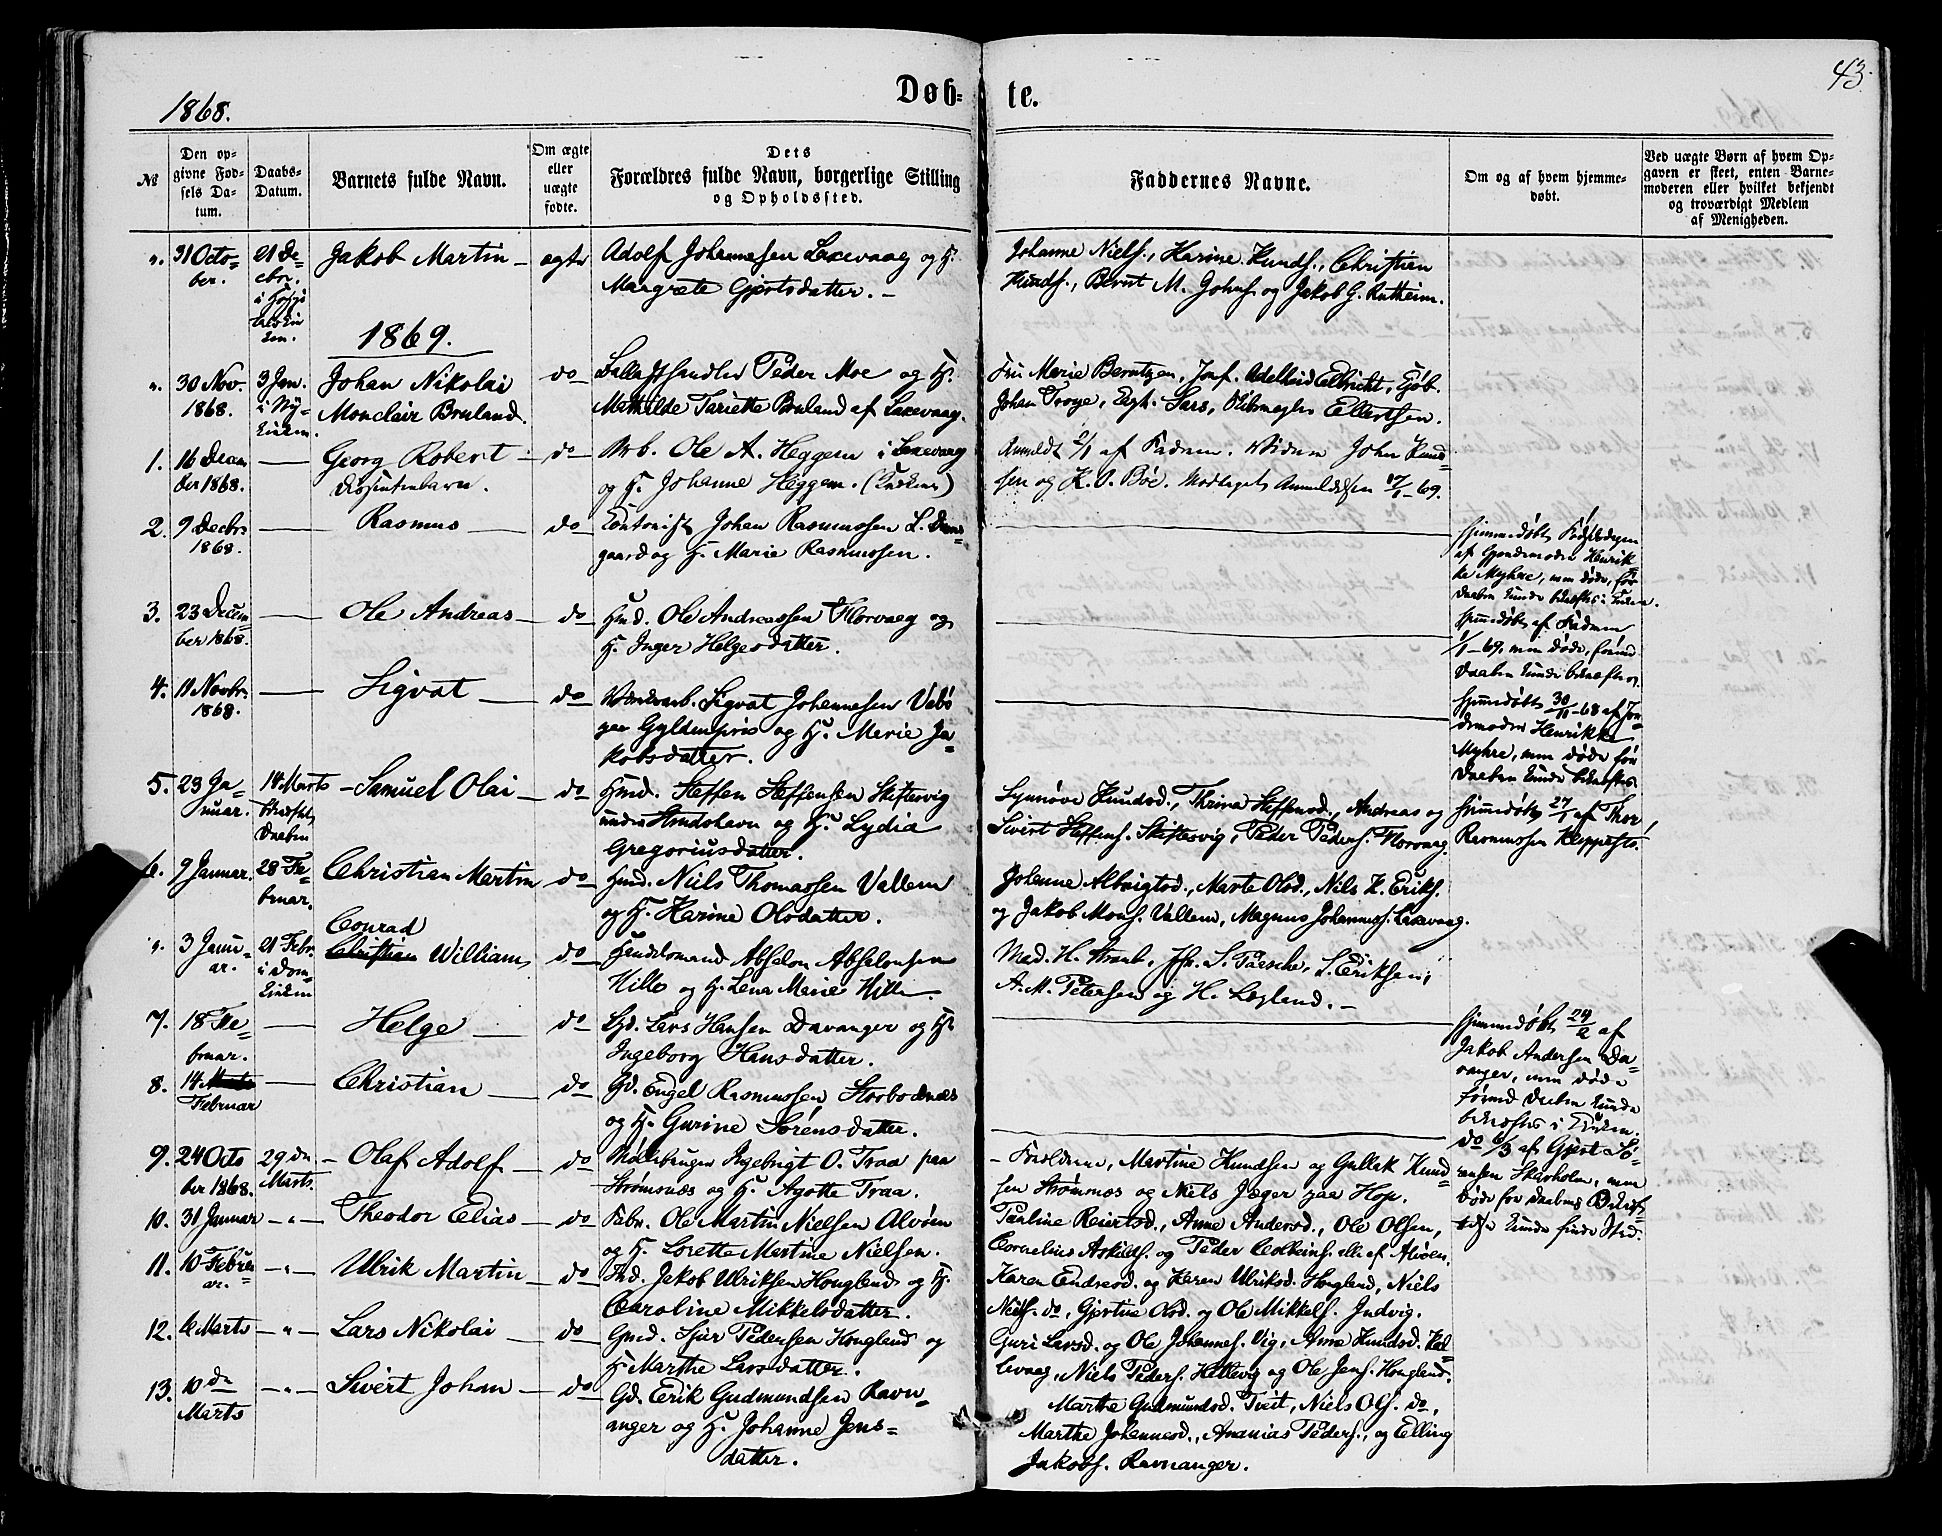 43.
1868.
Døb-te.
№
Den opgivne Fødsels Datum.
Daabs-Datum.
Barnets fulde Navn.
Om ægte eller uægte fødte.
Dets Forældres fulde Navn, borgerlige Stilling og Opholdssted.
Faddernes Navne.
Om og af hvem hjemmedøbt.
Ved uægte Børn af hvem Opgaven er skeet, enten Barnemoderen eller hvilket bekjendt og troværdigt Medlem af Menigheden.
31 Octo-
ber.
21 De-
cbr.
Jakob Martin
ægte
Adolf Johannesen Laxevaag og H.
Margrete Gjertsdatter.
Johanne Niels., Karine Knuds., Christien
Knuds., Bernt M. Johns. og Jakob G. Rutheim.
1869.
30 Nov.
1868.
3 Jan.
i Ny-
kirken.
Johan Nikolai
Monclair Bruland.
do
Peder Moe og H.
Mathilde Tariette Bruland af Laxevaag.
Fru Merie Berntzen, Jonf. Adelheid
Johan Troye, Sars, Ellertsen.
1.
16 Decem
ber 1868.
Georg Robert
Dissenterbarn.
do
Arb. Ole A. Heggem i Laxevaag
og H. Johanne Heggem.
Anmeldt 2/1 af Faderen. Vidner John Knud-
sen og K. O. Bøe. Modtaget Anmeldelsen 17/1-69.
2.
9 Decbr
1868.
Rasmus
do
Contorist Johan Rasmussen L. Dam-
gaard og H. Marie Rasmussen.
Hjemmedøbt
af Gjordemoder Henrik-
ke Myhre, men døde, før
Daaben kunde bekræftes i Kirken.
3.
23 Decem-
ber 1868.
Ole Andreas
do
Hmd. Ole Andreassen Florvaag og
H. Inger Helgesdatter.
Hjemmedøbt af Faderen
1/1-69, men døde, førend
Daaben kunde bekræftes.
4.
11 Novbr.
1868.
Sigvat
do
Sigvat Johannesen Vebø
paa Gyldenpris og H. Marie Ja-
kobsdatter.
Hjemmedøbt 30/11-68 af Jor-
demoder Henrikke
Myhre, men døde før
Daaben kunde bekræftes.
5.
23 Ja-
nuar.
14 Marts
bekræftet
Daaben
Samuel Olai
do
Hmd. Steffen Steffensen Skiftesvig
under Strudshavn og H. Lydia
Gregoriusdatter.
Synnøve Knudsd., Thrine Steffensd., Andreas og
Sivert Steffens. Skiftesvig, Peder Peders. Florvaag.
Hjemmedøbt 27/1 af Thore
Rasmussen Kleppestø.
6.
9 Januar.
28 Fe-
bruar.
Christian Martin
do
Hmd. Niels Thomassen Vallem
og H. Karine Olsdatter.
Johanne Albrigtsd., Marte Olsd., Niels K. Eriks.
og Jakob Mons. Vallem, Magnus Johanness. Laxevaag.
3 Janu-
ar.
21 Febr.
i Dom-
kirken
Conrad
Christian William
do
Handelsmand Absalon Absalonsen
Hille og H. Lena Marie Hille.
Mad. H. Straub, Jfr. S. Paasche, S. Eriksen,
A. M. Petersen og H. Lægland.
7.
18 Fe-
bruar.
Helge
do
Gd. Lars Hansen Davanger og H.
Ingeborg Hansdatter.
Hjemmedøbt 24/2 af
Jakob Andersen Da-
vanger, men døde
førend Daaben kunde
bekræftes i Kirken.
8.
14 Marts
Februar
Christian
do
Gd. Engel Rasmussen Storbodnæs
og H. Gurine Sørensdatter.
do 6/3 af Gjert Sø-
rensen Skarholm, men
døde før Daabens Bekræf-
telse kunde finde Sted.
9.
24 Octo
ber 1868.
29 de
Marts.
Olaf Adolf
do
Møllebruger Ingebrigt O. Traa paa
Strømsnæs og H. Agotte Traa.
Forældrene, Martine Knudsen og Gullak Knud-
sen Strømnes og Niels Jæger paa Hop.
10.
31 Januar
Theodor Elias
do
Fabr. Ole Martin Nielsen Alvøen
og H. Lorette Martine Nielsen.
Pauline Reiertsd., Anne Andersd., Ole Olsen,
Cornelius Askilds. og Peder Colbeins. alle af Alvøen.
11.
10 Febru
ar.
Ulrik Martin
do
Jakob Ulriksen Hougland og H.
Caroline Mikkelsdatter.
Karen Endresd. og Karen Ulriksd. Hougland, Niels
Niels. do, Gjertine Olsd. og Ole Mikkels. Indvig.
12.
6 Marts
Lars Nikolai
do
Gmd. Sjur Pedersen Hougland og
H. Marthe Larsdatter.
Guri Larsd. og Ole Johannes. Vig, Anne Knudsd. Kal-
levaag, Niels Peders. Hellevig og Ole Jens. Hougland.
13.
10 de
Marts
Sivert Johan
do
Gd. Erik Gudmundsen Ravn-
anger og H. Johanne Jens-
datter.
Marthe Gudmundsd. Tveit, Niels Ols. do,
Marthe Johannesd., Ananias Peders., og Elling
Jakobs. Ravnanger.